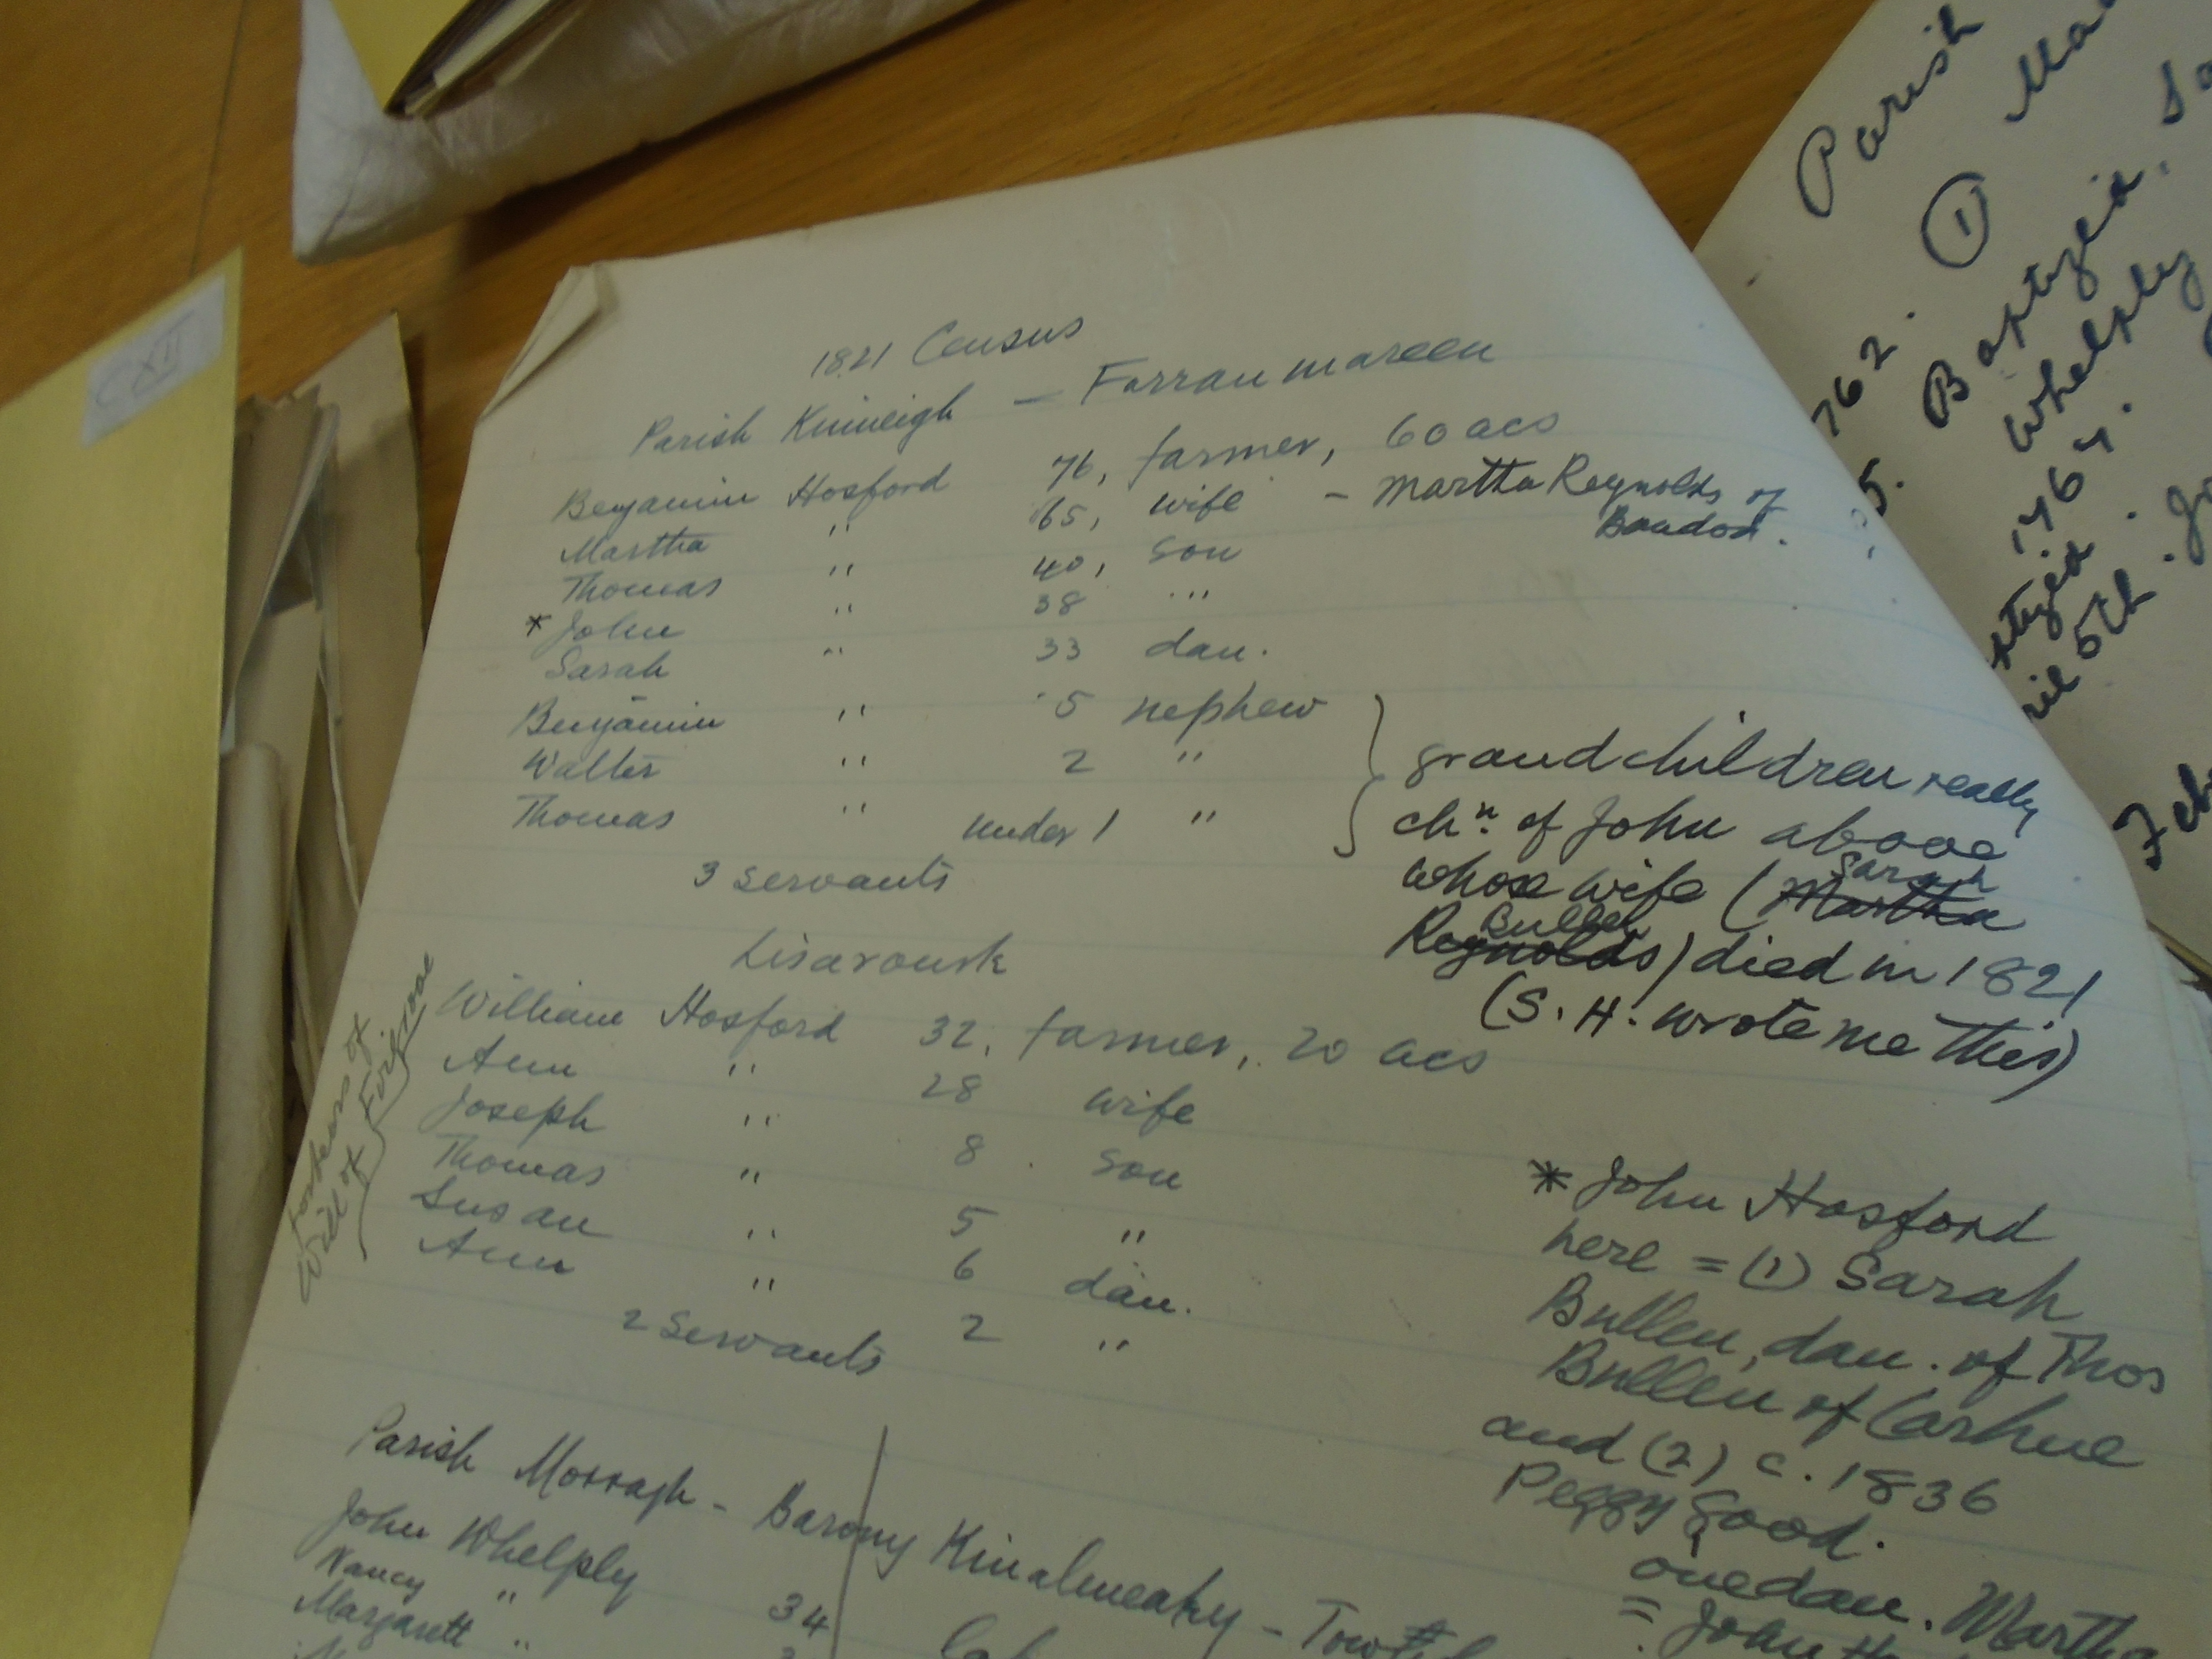 CXII
1821 Census
Parish Kinneigh — Farranmareen
Benjamin Hosford 76, farmer, 60 acs
Martha " 65, wife - Martha Reynolds of
Bandon.
Thomas " 40, son
* John " 38 "
Sarah " 33 dau.
Benjamin " 5 nephew
Walter " 2 "
Thomas " under 1 "
3 servants
grandchildren really
chn. of John above
whose wife (Sarah Martha
Bullen
Reynolds) died in 1821
(S. H. wrote me this)
Lisaroursk
William Hosford 32, farmer, 20 acs
Ann " 28 wife
Joseph " 8 son
Thomas " 5 "
Susan " 6 dau.
Ann " 2 "
2 servants
Will of
* John Hosford
here = (1) Sarah
Bullen, dau. of Thos
Bullen of Carhue
and (2) c. 1836
Peggy Good.
one dau. Martha
= John
Parish Morragh - Barony Kinalmeaky -
John Whelply 34
Nancy "
Margarett "
Parish
762. ① 
5. Baptized
Whelply
1764.
5th